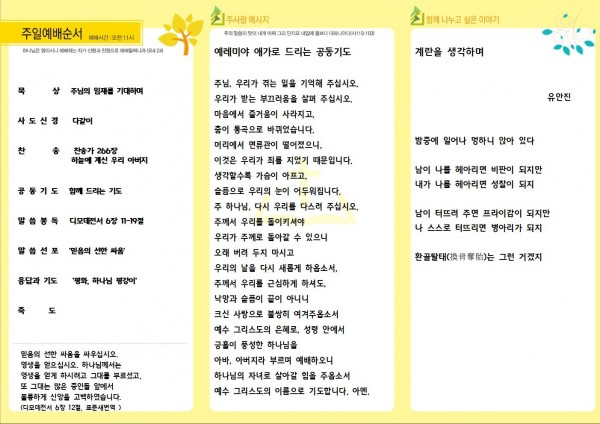 주일예배순서
예배시간 : 오전 11시
하나님은 영이시니 예배하는 자가 신령과 진정으로 예배할찌니라 (요4:24)
묵 상 주님의 임재를 기대하며
사 도 신 경 다같이
찬 송 찬송가 266장
하늘에 계신 우리 아버지
공 동 기 도 함께 드리는 기도
말 씀 봉 독 디모데전서 6장 11-19절
말 씀 선 포 '믿음의 선한 싸움'
응답과 기도 '평화, 하나님 평강이'
축 도
믿음의 선한 싸움을 싸우십시오.
영생을 얻으십시오. 하나님께서는
영생을 얻게 하시려고 그대를 부르셨고,
또 그대는 많은 증인들 앞에서
훌륭하게 신앙을 고백하였습니다.
(디모데전서 6장 12절, 표준새번역 )
주사랑 메시지
주의 말씀의 맛이 내게 어찌 그리 단지요 내입에 꿀보다 더하니이다(시119:103)
예레미야 애가로 드리는 공동기도
주님, 우리가 겪는 일을 기억해 주십시오.
우리가 받는 부끄러움을 살펴 주십시오.
마음에서 즐거움이 사라지고,
춤이 통곡으로 바뀌었습니다.
머리에서 면류관이 떨어졌으니,
이것은 우리가 죄를 지었기 때문입니다.
생각할수록 가슴이 아프고,
슬픔으로 우리의 눈이 어두워집니다.
주 하나님, 다시 우리를 다스려 주십시오.
주께서 우리를 돌이키셔야
우리가 주께로 돌아갈 수 있으니
오래 버려 두지 마시고
우리의 날을 다시 새롭게 하옵소서,
주께서 우리를 근심하게 하셔도,
낙망과 슬픔이 끝이 아니니
크신 사랑으로 불쌍히 여겨주옵소서
예수 그리스도의 은혜로, 성령 안에서
긍휼이 풍성한 하나님을
아바, 아버지라 부르며 예배하오니
하나님의 자녀로 살아갈 힘을 주옵소서
예수 그리스도의 이름으로 기도합니다. 아멘.
함께 나누고 싶은 이야기
계란을 생각하며
유안진
밤중에 일어나 멍하니 앉아 있다
남이 나를 헤아리면 비판이 되지만
내가 나를 헤아리면 성찰이 되지
남이 터뜨려 주면 프라이감이 되지만
나 스스로 터뜨리면 병아리가 되지
환골탈태(換骨奪胎)는 그런 거겠지